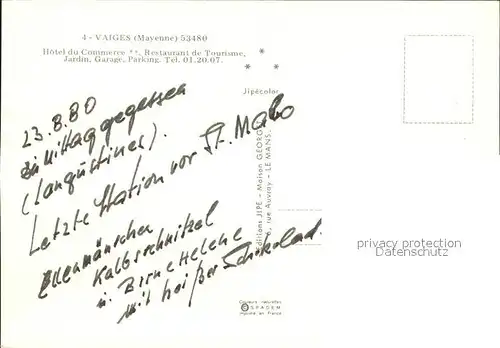 4 - VAIGES (Mayenne) 53480
Hôtel du Commerce **, Restaurant de Tourisme,
Jardin, Garage, Parking. Tél. 01.20.07.
* * *
Jipécolor
23.8.80
zu Mittag gegessen
(Langustines).
Letzte Station vor St. Malo
Kalbsschnitzel
u. Birne Helene
mit heißer Schokolad.
Editions JIPE - Maison GEORG
rue Auvray - LE MANS.
Couleurs naturelles
© SPADEM
Imprimé en France
privacy protection
Datenschutz